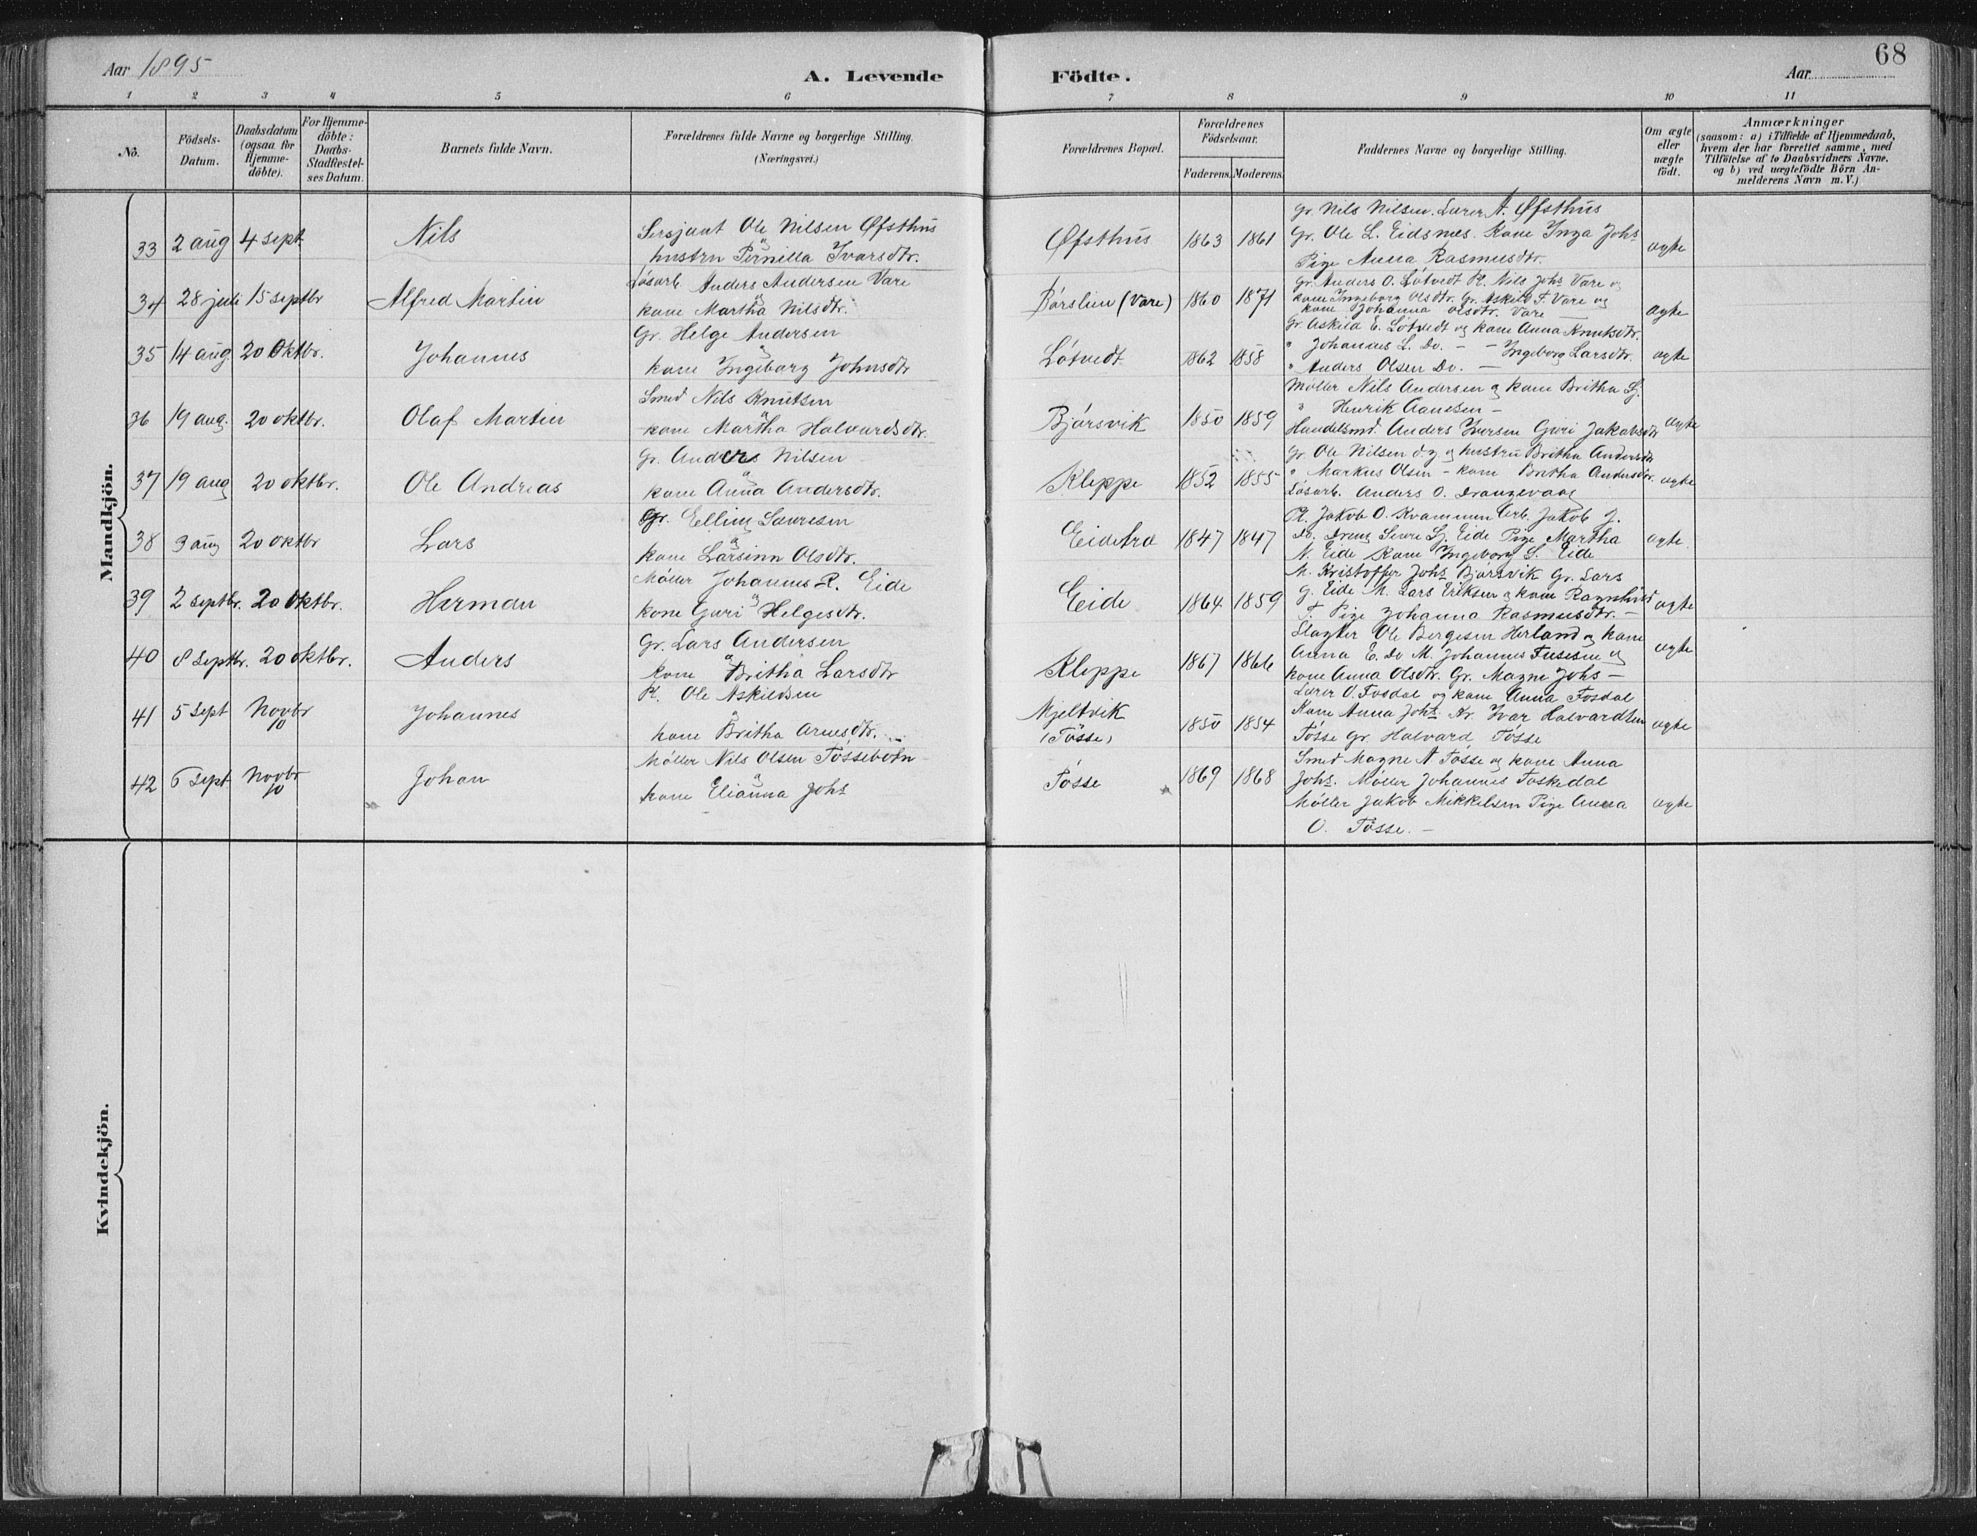 Aar 1895
A. Levende Födte.
68
Aar
1 2 3 4 5 6 7 8 9 10 11
No.
Födsels-Datum.
Daabsdatum (ogsaa for Hjemme-döbte).
For Hjemme-döbte: Daabs-Stadfæstel-ses Datum.
Barnets fulde Navn.
Forældrenes fulde Navne og borgerlige Stilling. (Næringsvei.)
Forældrenes Bopæl.
Forældrenes Födselsaar.
Faderens. Moderens.
Faddernes Navne og borgerlige Stilling.
Om ægte eller uægte födt.
Anmærkninger (saasom: a) i Tilfælde af Hjemmedaab, hvem der har forrettet samme, med Tilföielse af to Daabsvidners Navne, og b) ved uægtefödte Börn An-melderens Navn m. V.)
Mandkjön.
33 2 aug 4 sept. Nils
Sersjant Ole Nilsen Øfsthus
hustru Pernilla Ivarsdtr.
Øfsthus 1863 1861
Gr. Nils Nilsen. Lærer A. Øfsthus
Gr. Ole L. Eidsnes. Kone Inga Johs
Pige Anna Rasmusdtr.
ægte
34 28 juli 15 septbr Alfred Martin
Løsarb. Anders Andersen Vare
kone Martha Nilsdtr.
Børslien (Vare) 1860 1871
Gr. Anders O. Løtvedt Pl. Nils Johs Vare og
kone Ingeborg Olsdtr. Gr. Askild F. Vare og
kone Johanna Olsdtr. Vare —
ægte
35 14 aug. 20 Oktbr. Johannes
Gr. Helge Andersen
kone Ingeborg Johnsdtr
Løtvedt 1862 1858
Gr. Askild E. Løtvedt og kone Anna Knutsdtr.
" Johannes L. Do. — — Ingeborg Larsdtr.
" Anders Olsen Do. —
ægte
36 19 aug. 20 oktbr. Olaf Martin
Smed Nils Knutsen
kone Martha Halvardsdtr.
Bjørsvik 1850 1859
Møller Nils Andersen og kone Britha Lj.
" Henrik Aanesen —
Handelsmd. Anders Iversen Guri Jakobsdtr
ægte
37 19 aug 20 oktbr. Ole Andreas
Gr. Anders Nilsen
kone Anna Andersdtr.
Kleppe 1852 1855
Gr. Ole Nilsen d.y. og hustru Britha Andersdtr
" Markus Olsen — kone Britha Andersdtr.
Løsarb. Anders O. Drangevaag
ægte
38 3 aug 20 oktbr Lars
Gr. Elling Larsen
kone Larsina Olsdtr.
Eidetræ 1847 1847
Pl. Jakob O. Kvammen Arb. Jakob J.
Do. Dreng Lj. Eide Pige Martha
N. Eide Kone Ingeborg S. Eide
ægte.
39 2 septbr. 20 Oktbr. Herman
Møller Johannes R. Eide
kone Guri Helgesdtr.
Eide 1864 1859
M. Kristoffer Johs Bjørsvik Gr. Lars
G. Eide M. Lars Eriksen og kone Ragnhild
T. Pige Johanna Rasmusdtr. —
ægte
40 8 septbr. 20 oktbr. Anders
Gr. Lars Andersen
kone Britha Larsdtr
Kleppe 1867 1866
Slagter Ole Bergesen Herland og kone
Anna E. Do M. Johannes og
kone Anna Olsdtr. Gr. Magne Johs —
ægte
41 5 sept Novbr 10 Johannes
Pl. Ole Askildsen
kone Britha Arnesdtr. —
Mjeltvik (Tösse) 1850 1854
Lærer O. Fosdal og kone Anna Fosdal
Kone Anna Johs. Kr. Ivar Halvardsen
Tösse Gr. Halvard Tösse
ægte
42 6 sept Novbr 10 Johan
Møller Nils Olsen Tössebotn
kone Elianna Johs
Tösse 1869 1868
Smed Magne A Tösse og kone Anna
Johs. Møller Johannes Toskedal
Møller Jakob Mikkelsen Pige Anna
O. Tösse. —
ægte
Kvindekjön.